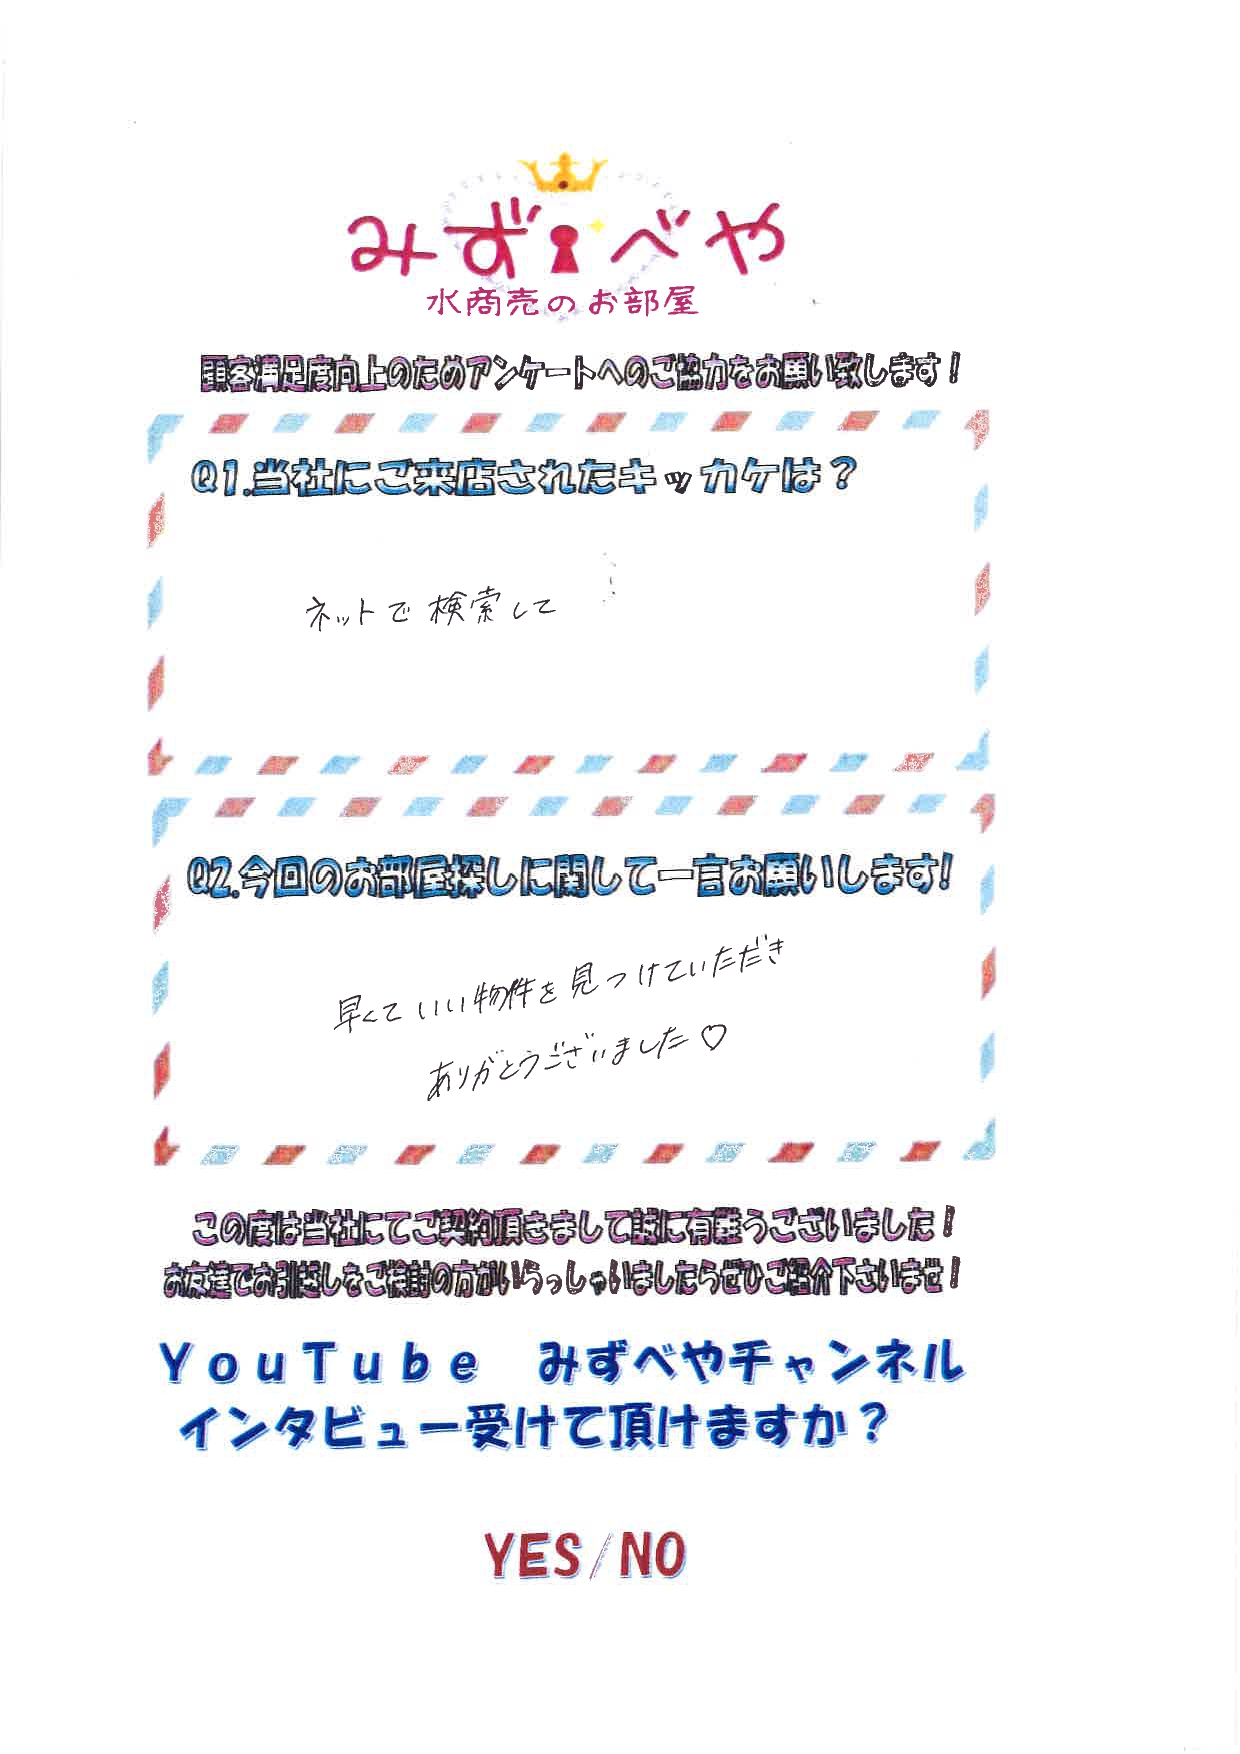 みずべや
水商売のお部屋
顧客満足度向上のためアンケートへのご協力をお願い致します！
Q1.当社にご来店されたキッカケは？
ネットで検索して
Q2.今回のお部屋探しに関して一言お願いします!
早くていい物件を見つけていただき
ありがとうございました♡
この度は当社にてご契約頂きまして誠に有難うございました！
お友達でお引越しをご検討の方がいらっしゃいましたらぜひご紹介下さいませ！
YouTube みずべやチャンネル
インタビュー受けて頂けますか？
YES/NO